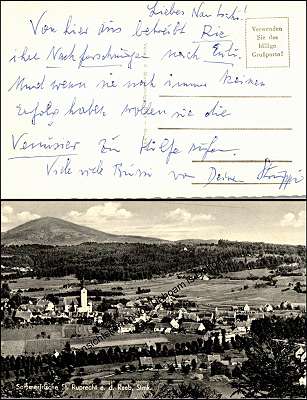 Liebes Nautschi!
Von hier aus betreibt Rie
ihre Nachforschungen nach Enti.
Und wenn sie noch immer keinen
Erfolg haben wollen sie die
zu Hilfe rufen.
Viele viele Bussi von Deinem
Verwenden
Sie das
billige
Großporto!
Sommerfrische St. Ruprecht a. d. Raab, Stmk.